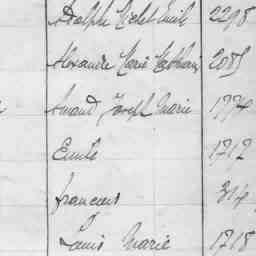 Adolphe Michel Emile 2298
Alexandre Marie Mathurin 2085
Amand Joseph Marie 1774
Emile 1712
francois 314
Louis Marie 1718